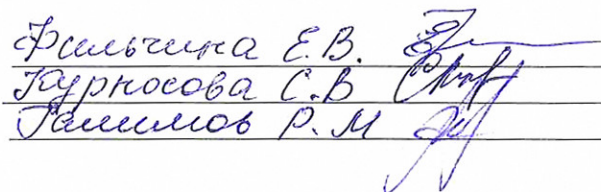 Фильчина Е.В.
Курносова С.В
Галимов Р.М